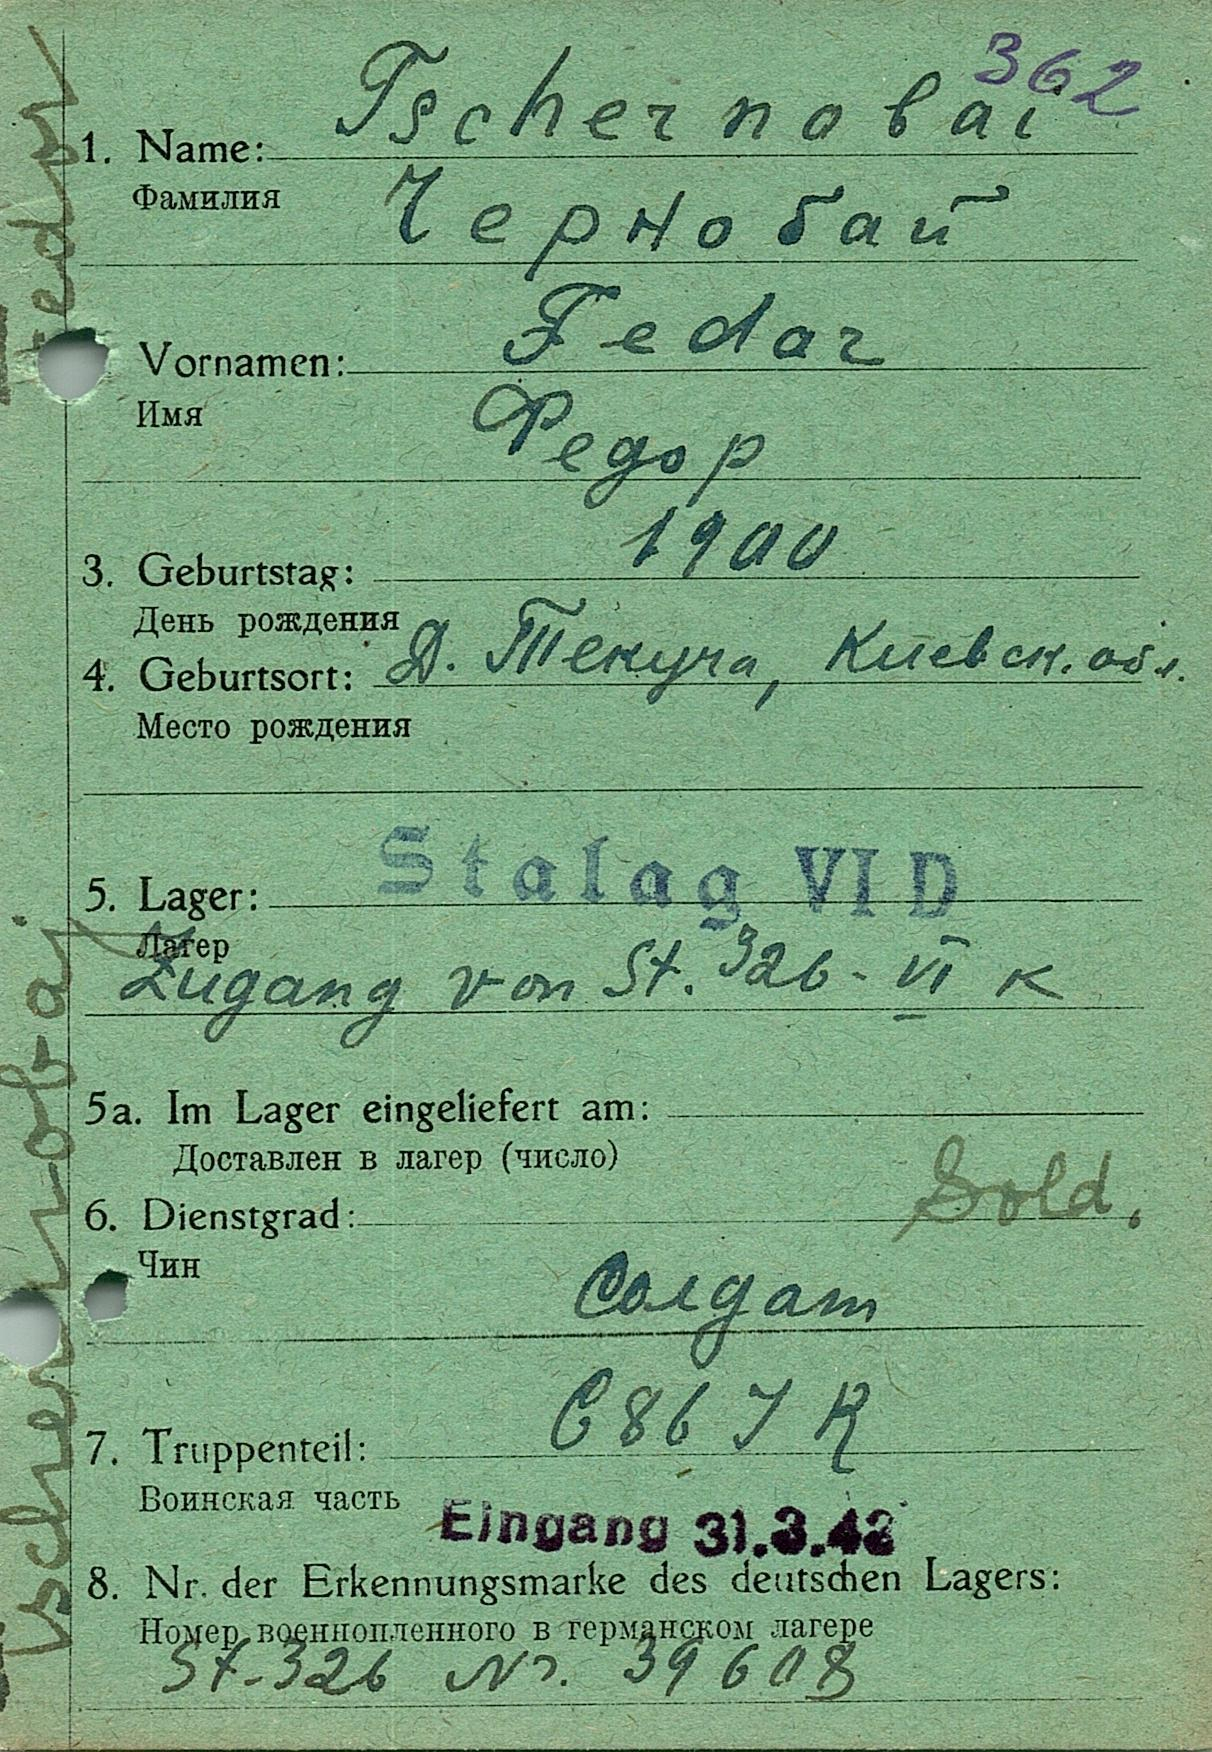 362
1. Name: Tschernobai
Фамилия
Чернобай
Vornamen: Fedor
Имя
Федор
3. Geburtstag: 1900
День рождения
4. Geburtsort: Д. Текуча, Киевск. обл.
Место рождения
5. Lager: Stalag VI D
Лагер
Zugang von St. 326 - VI K
5a. Im Lager eingeliefert am:
Доставлен в лагер (число)
6. Dienstgrad: Sold.
Чин
Солдат
7. Truppenteil: 686 I R
Воинская часть
Eingang 31.3.43
8. Nr. der Erkennungsmarke des deutschen Lagers:
Номер военнопленного в германском лагере
St-326 Nr. 39608
Tschernobaj